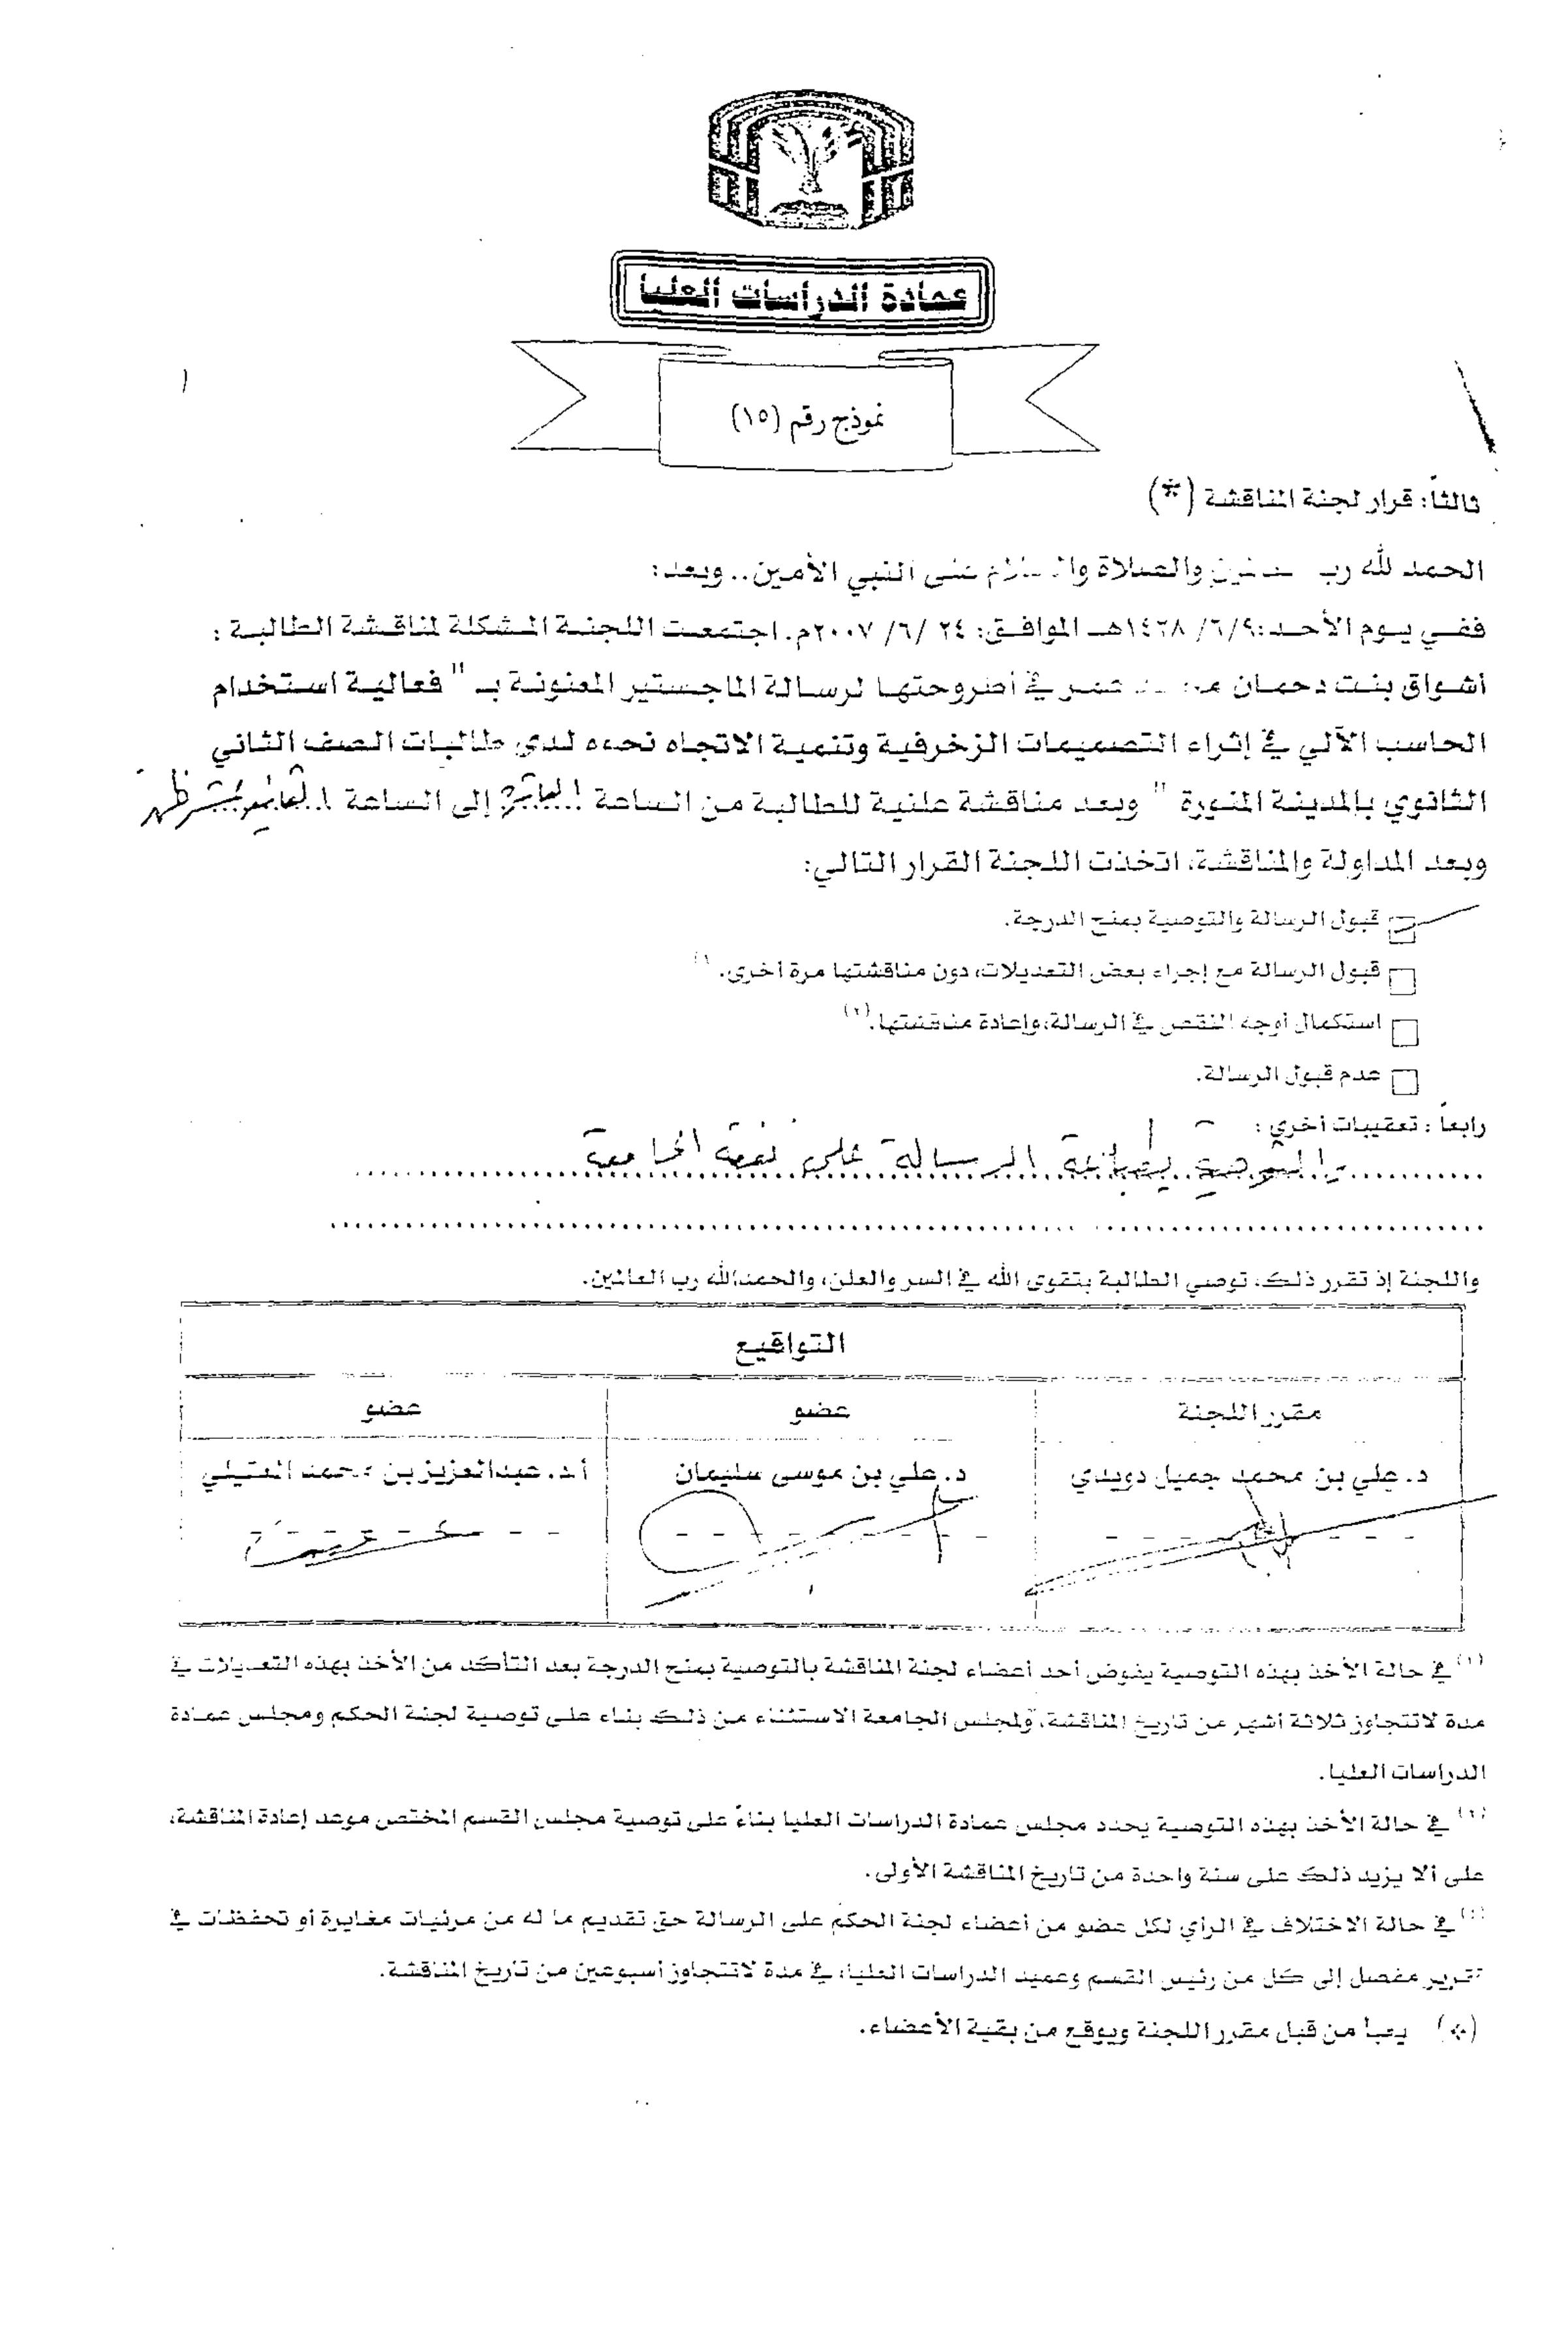 عمادة الدراسات العليا
نموذج رقم (١٥)
ثالثاً: قرار لجنة المناقشة (*)
الحمد لله رب والصلاة والسلام على النبي الأمين.. وبعد:
ففي يوم الأحد: ٦/٩/ ١٤٢٨هـ الموافق: ٢٤ /٦/ ٢٠٠٧م. اجتمعت اللجنة المشكلة لمناقشة الطالبة :
أشواق بنت دحمان عمر في أطروحتها لرسالة الماجستير المعنونة بـ " فعالية استخدام
الحاسب الآلي في إثراء التصميمات الزخرفية وتنمية الاتجاه نحوه لدى طالبات الصف الثاني
الثانوي بالمدينة المنورة " وبعد مناقشة علنية للطالبة من الساعة إلى الساعة
وبعد المداولة والمناقشة، اتخذت اللجنة القرار التالي:
قبول الرسالة والتوصية بمنح الدرجة.
قبول الرسالة مع إجراء بعض التعديلات، دون مناقشتها مرة أخرى. (١)
استكمال أوجه النقص في الرسالة، وإعادة مناقشتها. (٢)
عدم قبول الرسالة.
رابعاً : تعقيبات أخرى :
والتوصية بطباعة الرسالة على نفقة الجامعة
واللجنة إذ تقرر ذلك، توصي الطالبة بتقوى الله في السر والعلن، والحمدالله رب العالمين.
التواقيع
مقرر اللجنة عضو عضو
د. علي بن محمد جميل دويدي د. علي بن موسى سليمان أ.د. عبدالعزيز بن محمد العقيلي
(١) في حالة الأخذ بهذه التوصية يفوض أحد أعضاء لجنة المناقشة بالتوصية بمنح الدرجة بعد التأكد من الأخذ بهذه التعديلات في
مدة لاتتجاوز ثلاثة أشهر من تاريخ المناقشة، ولمجلس الجامعة الاستثناء من ذلك بناء على توصية لجنة الحكم ومجلس عمادة
الدراسات العليا.
(٢) في حالة الأخذ بهذه التوصية يحدد مجلس عمادة الدراسات العليا بناءً على توصية مجلس القسم المختص موعد إعادة المناقشة،
على ألا يزيد ذلك على سنة واحدة من تاريخ المناقشة الأولى.
في حالة الاختلاف في الرأي لكل عضو من أعضاء لجنة الحكم على الرسالة حق تقديم ما له من مرئيات مغايرة أو تحفظات في
تقرير مفصل إلى كل من رئيس القسم وعميد الدراسات العليا، في مدة لاتتجاوز أسبوعين من تاريخ المناقشة.
(*) يعبأ من قبل مقرر اللجنة ويوقع من بقية الأعضاء.